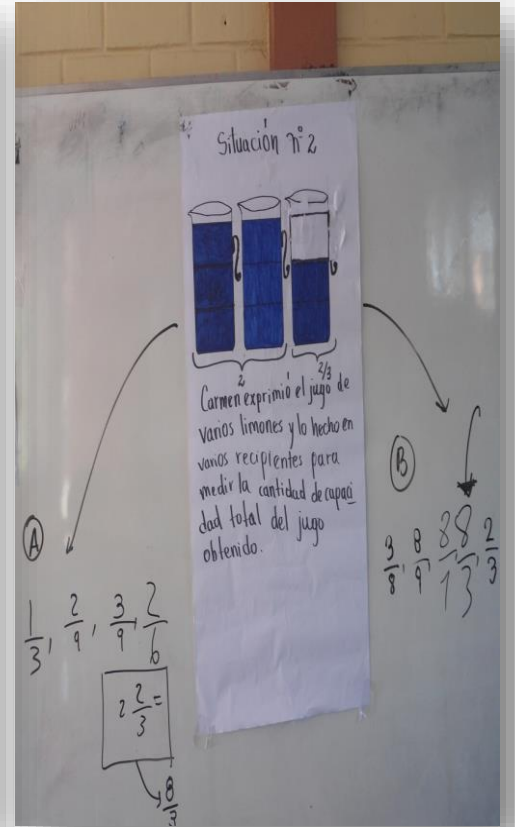 Situación n° 2
2
2/3
Carmen exprimió el jugo de
varios limones y lo hecho en
varios recipientes para
medir la cantidad de capaci
dad total del jugo
obtenido.
A
1/3, 2/9, 3/9, 2/6
2 2/3 =
8/3
B
3/8, 8/9, 8/3, 2/3